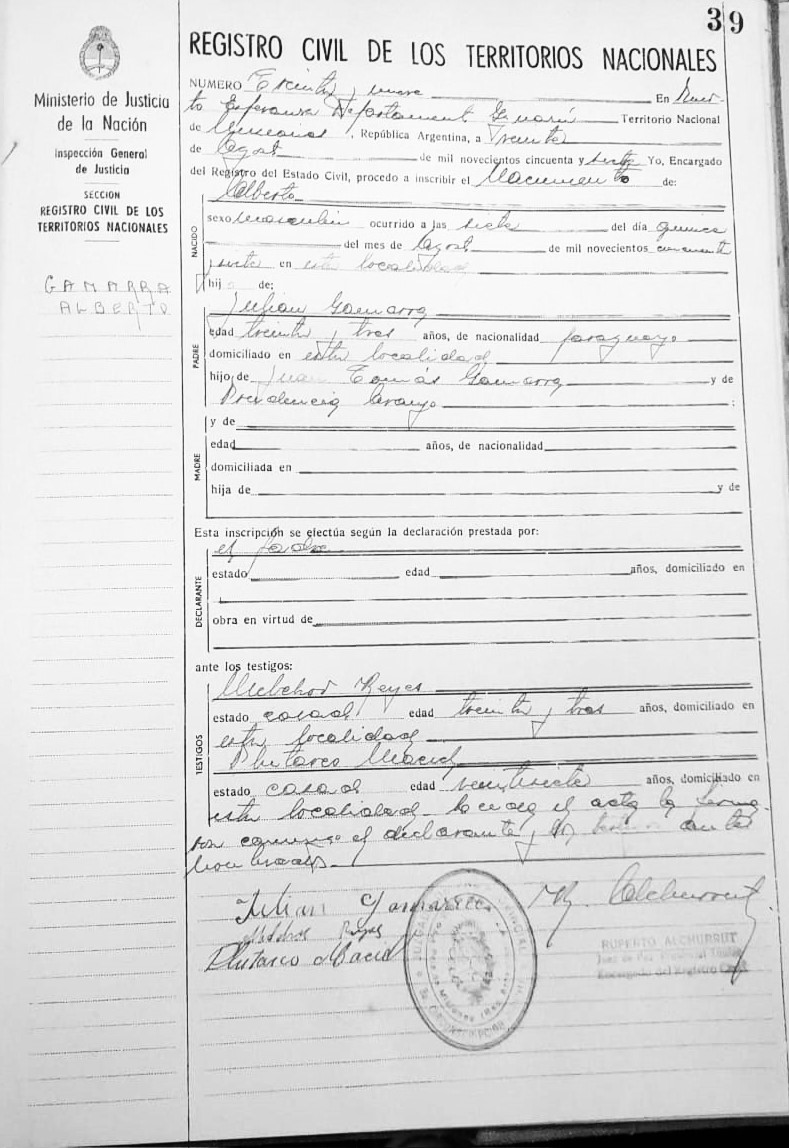 39
Ministerio de Justicia
de la Nación
Inspección General
de Justicia
SECCION
REGISTRO CIVIL DE LOS
TERRITORIOS NACIONALES
GAMARRA
ALBERTO
REGISTRO CIVIL DE LOS TERRITORIOS NACIONALES
NUMERO Treinta y nueve En Puer-
to Esperanza Departamento Territorio Nacional
de Misiones, República Argentina, a Treinta
de Agosto de mil novecientos cincuenta y siete Yo, Encargado
del Registro del Estado Civil, procedo a inscribir el Nacimiento de:
NACIDO
Alberto
sexo masculino ocurrido a las siete del día quince
del mes de Agosto de mil novecientos cincuenta
y siete en esta localidad
hijo de:
PADRE
Julian Gamarra
edad treinta y tres años, de nacionalidad paraguayo
domiciliado en esta localidad
hijo de Juan Tomás Gamarra y de
Providencia ;
MADRE
y de
edad años, de nacionalidad
domiciliada en
hija de y de
Esta inscripción se efectúa según la declaración prestada por:
DECLARANTE
el padre
estado edad años, domiciliado en
obra en virtud de
ante los testigos:
TESTIGOS
Melchor Reyes
estado casado edad treinta y tres años, domiciliado en
esta localidad
Plutarco Maciel
estado casado edad veintisiete años, domiciliado en
esta localidad. Leida el acta la firma-
ron conmigo el declarante y los testigos antes
nombrados.
Julian Gamarra
Melchor Reyes
Plutarco Maciel
RUPERTO ALCHURRUT
Juez de Paz
Encargado del Registro Civil